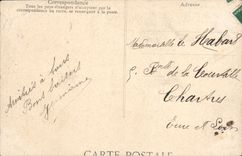 Correspondance
Tous les pays étrangers n'acceptent pas la
correspondance au recto, se renseigner à la poste.
Adresse
Mademoiselle L. Habert
5. Rue de la Courtille
Chartres
Eure et Loir
Amitiés à tous
Bons baisers
CARTE POSTALE